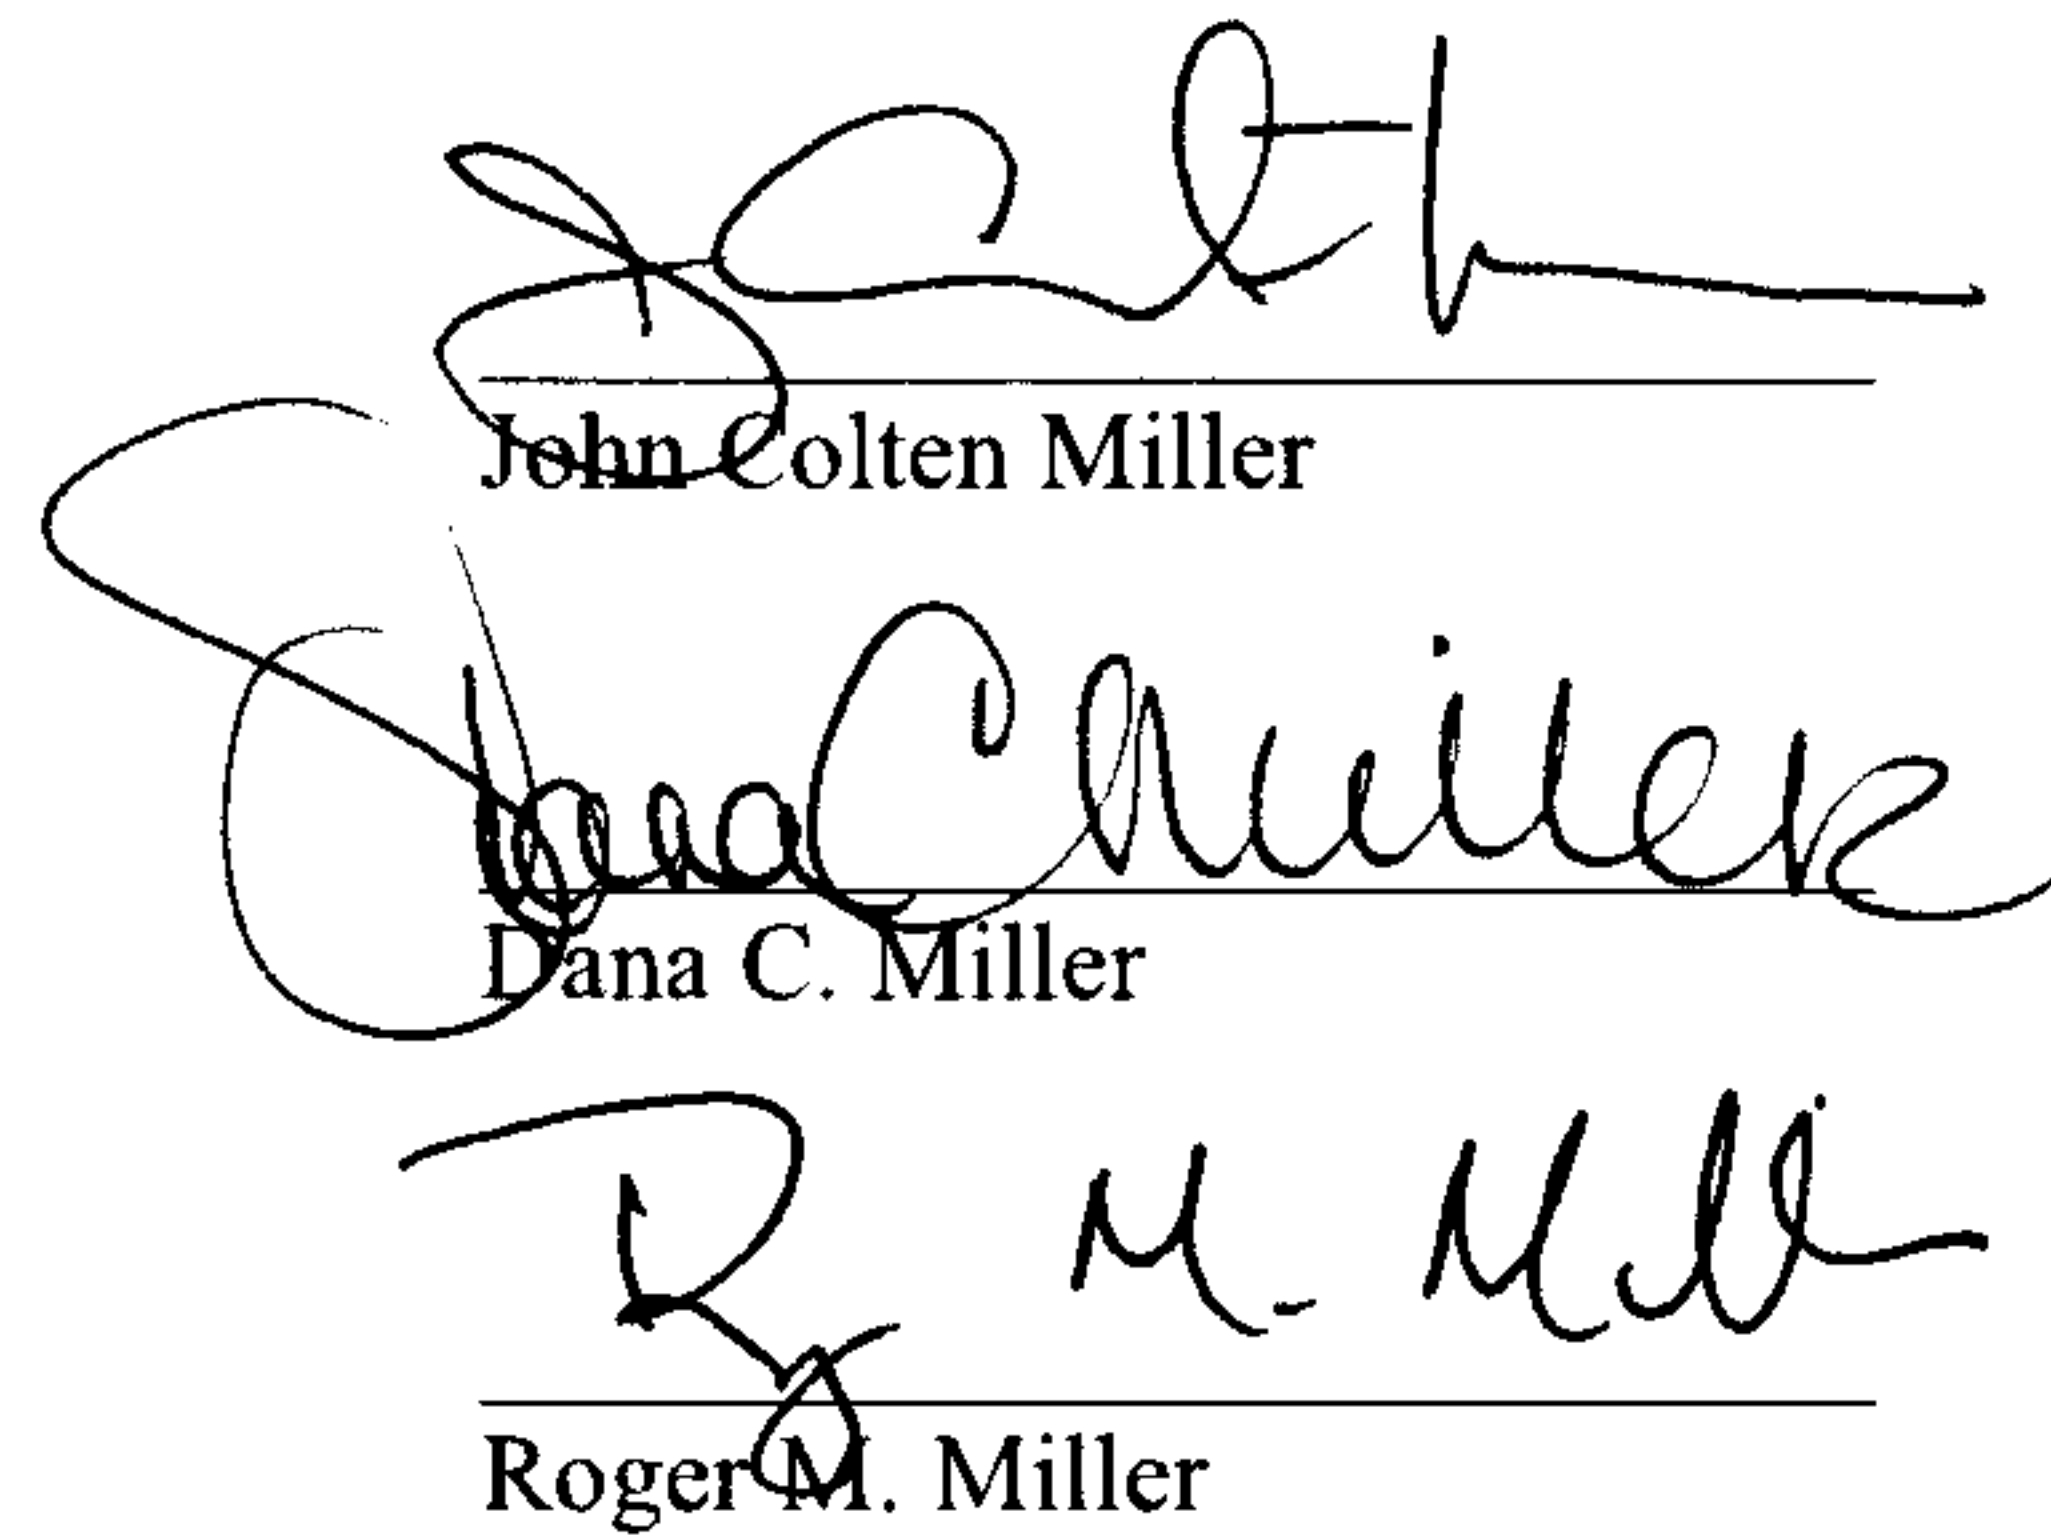 John Colten Miller
Dana C Miller
Dana C. Miller
R M. Miller
Roger M. Miller